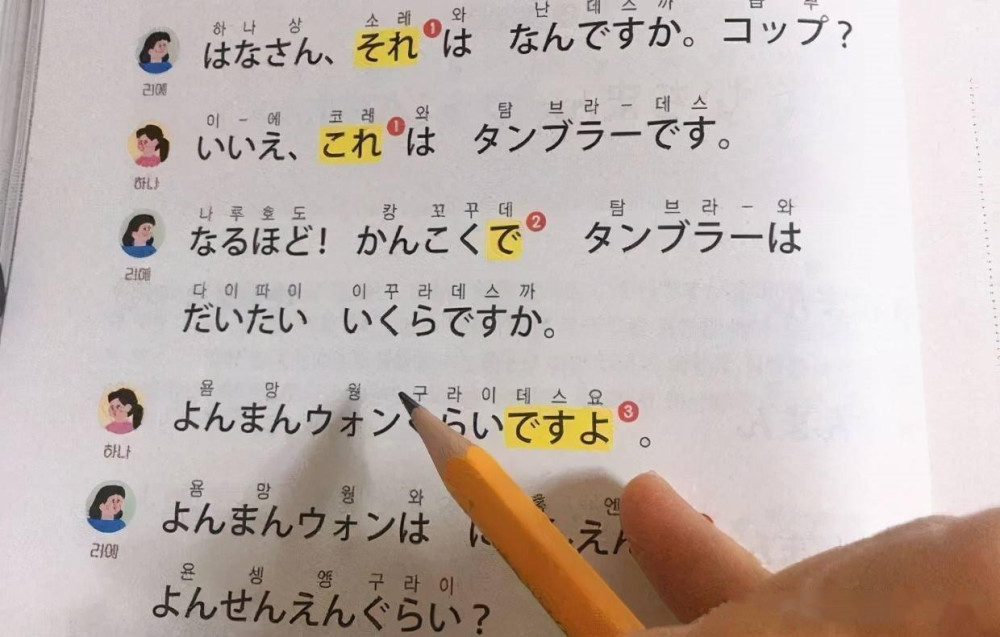 하 나 상 소 레 와 난 데 스 까
はなさん、それ1は なんですか。コップ?
리에
이 - 에 코 레 와 탐 브 라 - 데 스
いいえ、これ1は タンブラーです。
하나
나 루 호 도 캉 꼬 꾸 데 탐 브 라 - 와
なるほど! かんこくで2 タンブラーは
리에
다 이 따 이 이 꾸 라 데 스 까
だいたい いくらですか。
욤 망 웡 구 라 이 데 스 요
よんまんウォン らいですよ3。
하나
욤 망 웡 와 엔
よんまんウォンは えん
리에
욘 셍 엥 구 라 이
よんせんえんぐらい?